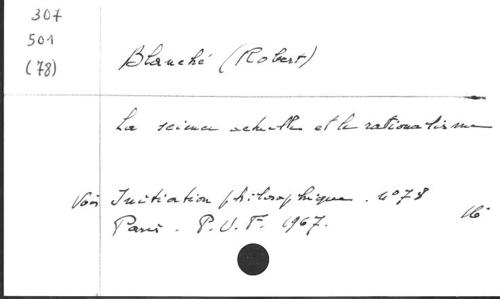 307
501
(78)
Blanché (Robert)
La science actuelle et le rationalisme
Voir Initiation philosophique. n° 78
Paris. P.U.F. 1967.